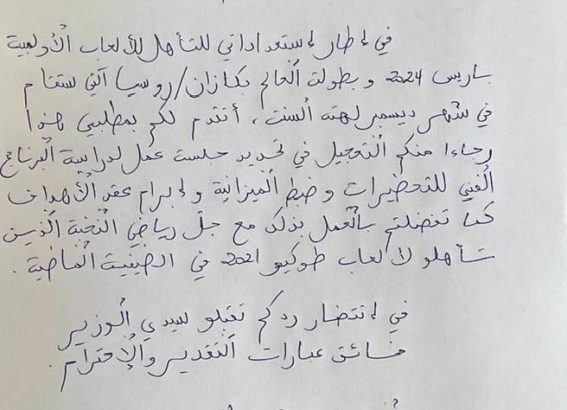 في إطار إستعداداتي للتأهل للألعاب الأولمبية
باريس 2024 و بطولة العالم بكازان/روسيا التي ستقام
في شهر ديسمبر لهته السنة، أتقدم لكم بمطلبي هذا
رجاءا منكم التعجيل في تحديد جلسة عمل لدراسة البرنامج
الفني للتحضيرات و ضبط الميزانية و إبرام عقد الأهداف
كما تفضلتم بالعمل بذلك مع جل رياضي النخبة الذين
تأهلو لألعاب طوكيو 2021 في الصيفية الماضية.
في إنتضار ردكم تقبلو سيدي الوزير
فائق عبارات التقدير والإحترام.